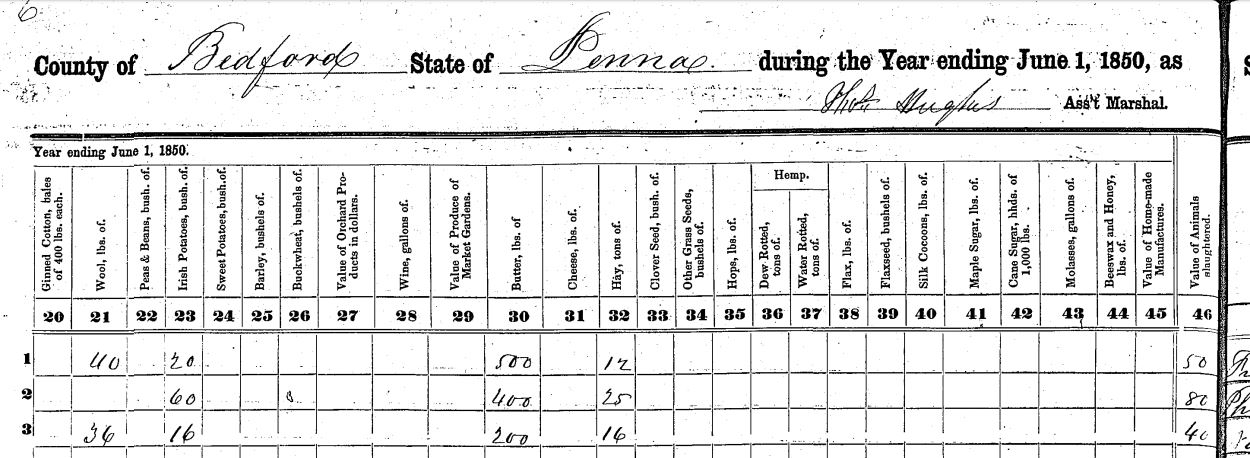 6
County of Bedford State of Penna. during the Year ending June 1, 1850, as
Thos. Hughes Ass't Marshal.
Year ending June 1, 1850.
Ginned Cotton, bales of 400 lbs. each.
Wool, lbs. of.
Peas & Beans, bush. of.
Irish Potatoes, bush. of.
Sweet Potatoes, bush. of.
Barley, bushels of.
Buckwheat, bushels of.
Value of Orchard Products in dollars.
Wine, gallons of.
Value of Produce of Market Gardens.
Butter, lbs. of
Cheese, lbs. of.
Hay, tons of.
Clover Seed, bush. of.
Other Grass Seeds, bushels of.
Hops, lbs. of.
Hemp.
Dew Rotted, tons of.
Water Rotted, tons of.
Flax, lbs. of.
Flaxseed, bushels of.
Silk Cocoons, lbs. of.
Maple Sugar, lbs. of.
Cane Sugar, hhds. of 1,000 lbs.
Molasses, gallons of.
Beeswax and Honey, lbs. of.
Value of Home-made Manufactures.
Value of Animals slaughtered.
20 21 22 23 24 25 26 27 28 29 30 31 32 33 34 35 36 37 38 39 40 41 42 43 44 45 46
1 40 20 500 12 50
2 60 8 400 25 80
3 36 16 200 16 40